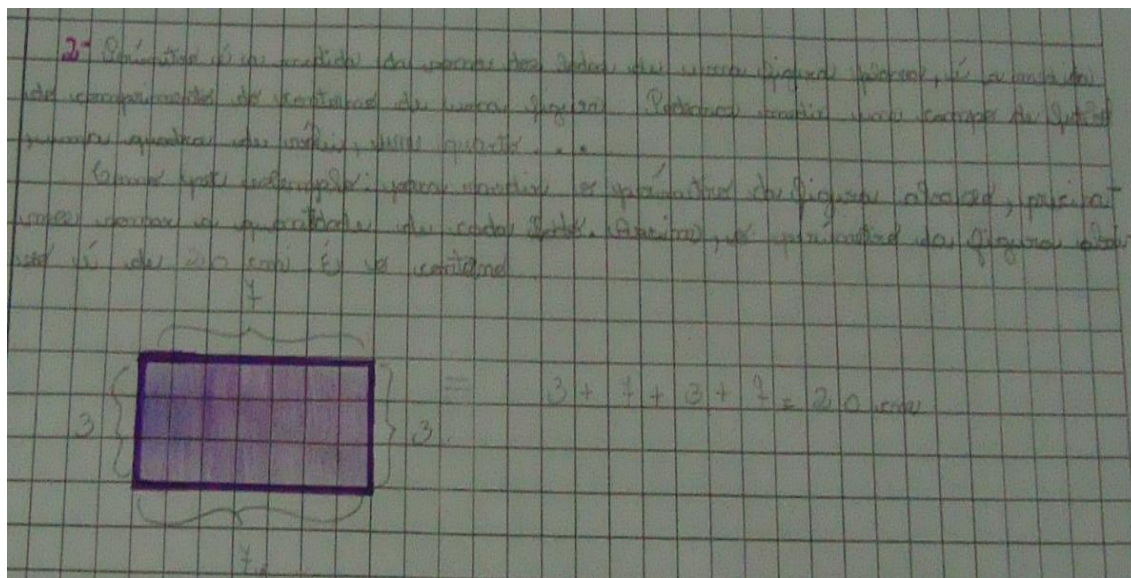 2- Perímetro é a medida da soma dos lados de uma figura plana, é a medida
do comprimento do contorno de uma figura. Podemos medir um campo de futebol
, uma quadra de vôlei, um quarto...
Como por exemplo: para medir o perímetro da figura abaixo, precisa-
mos somar a quantidade de cada lado. Assim, o perímetro da figura abai-
xo é de 20 cm É o contorno.
7
3
3
= 3 + 7 + 3 + 7 = 20 cm
7